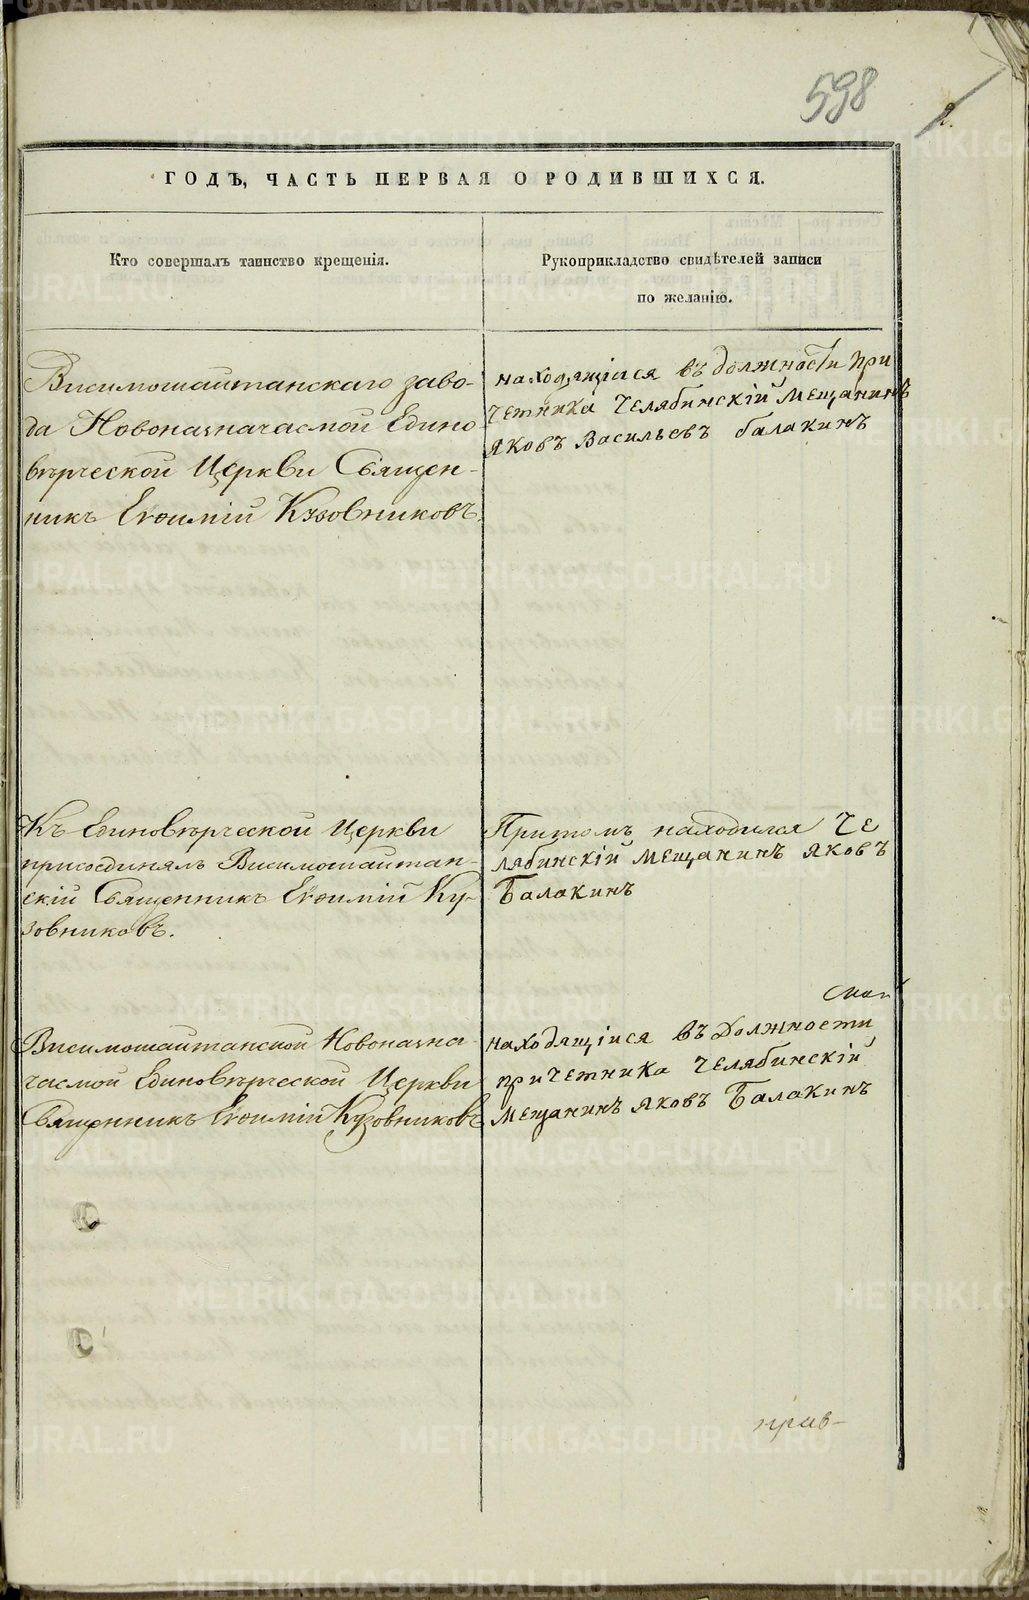 598
2.
ГОДЪ, ЧАСТЬ ПЕРВАЯ О РОДИВШИХСЯ.
Кто совершалъ таинство крещенія.
Рукоприкладство свидѣтелей записи
по желанію.
Висимошайтанскаго заво-
да Новоназначаемой Едино
вѣрческой Церкви Священ-
никъ Евѳимій Кузовниковъ.
находящійся въ должности при
четника Челябинскій мещанинъ
Яковъ Васильевъ балакинъ
Къ Единовѣрческой Церкви
присоединялъ Висимошайтан-
скій Священникъ Евѳимій Ку-
зовниковъ.
Притомъ находился Че
лябинскій мещанинъ Яковъ
Балакинъ
Висимошайтанской Новоназна-
чаемой Единовѣрческой Церкви
Священникъ Евѳимій Кузовниковъ
находящійся въ Должности
причетника Челябинскій
мещанинъ Яковъ Балакинъ
METRIKI.GASO-URAL.RU